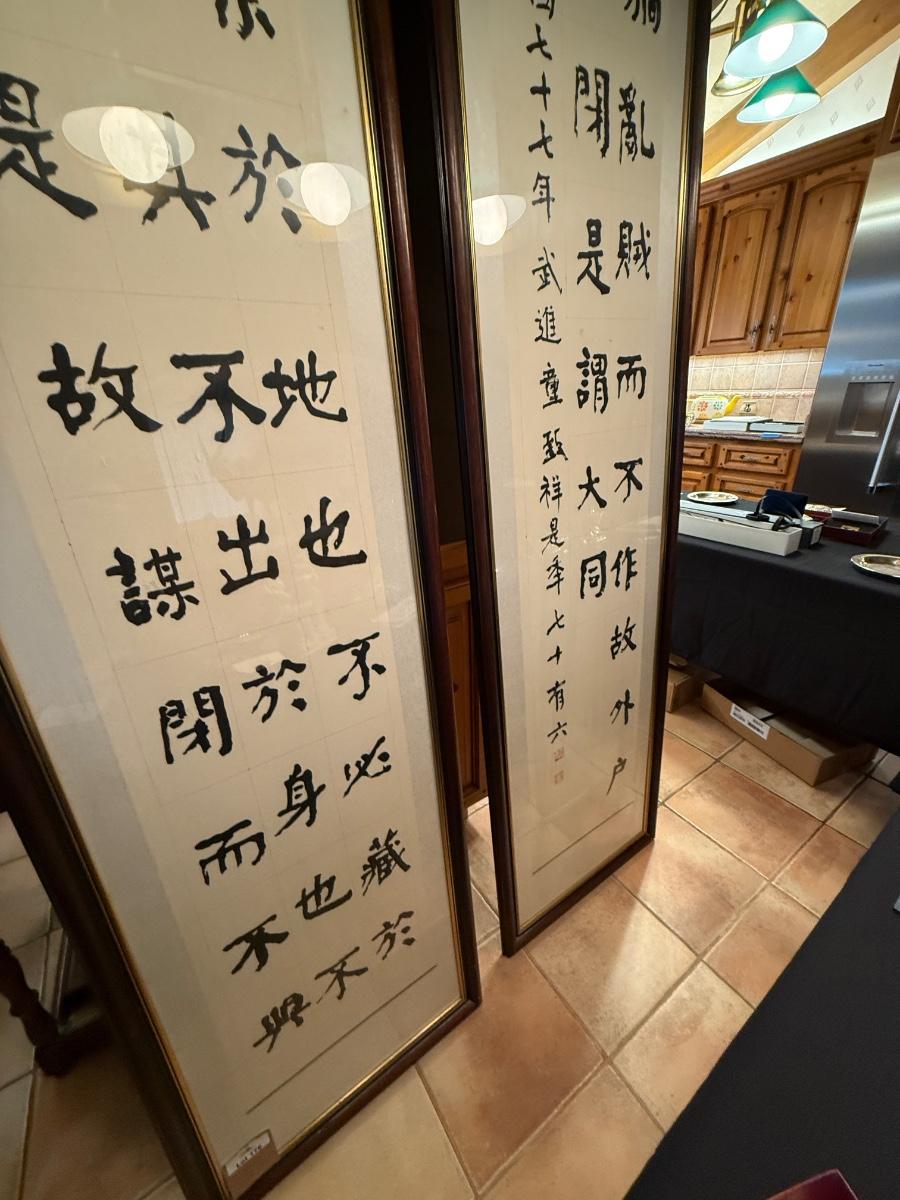 於地也不必藏於
其不出於身也不
是故謀閉而不興
亂賊而不作故外户
閉是謂大同
七十七年武進童致祥是秊七十有六